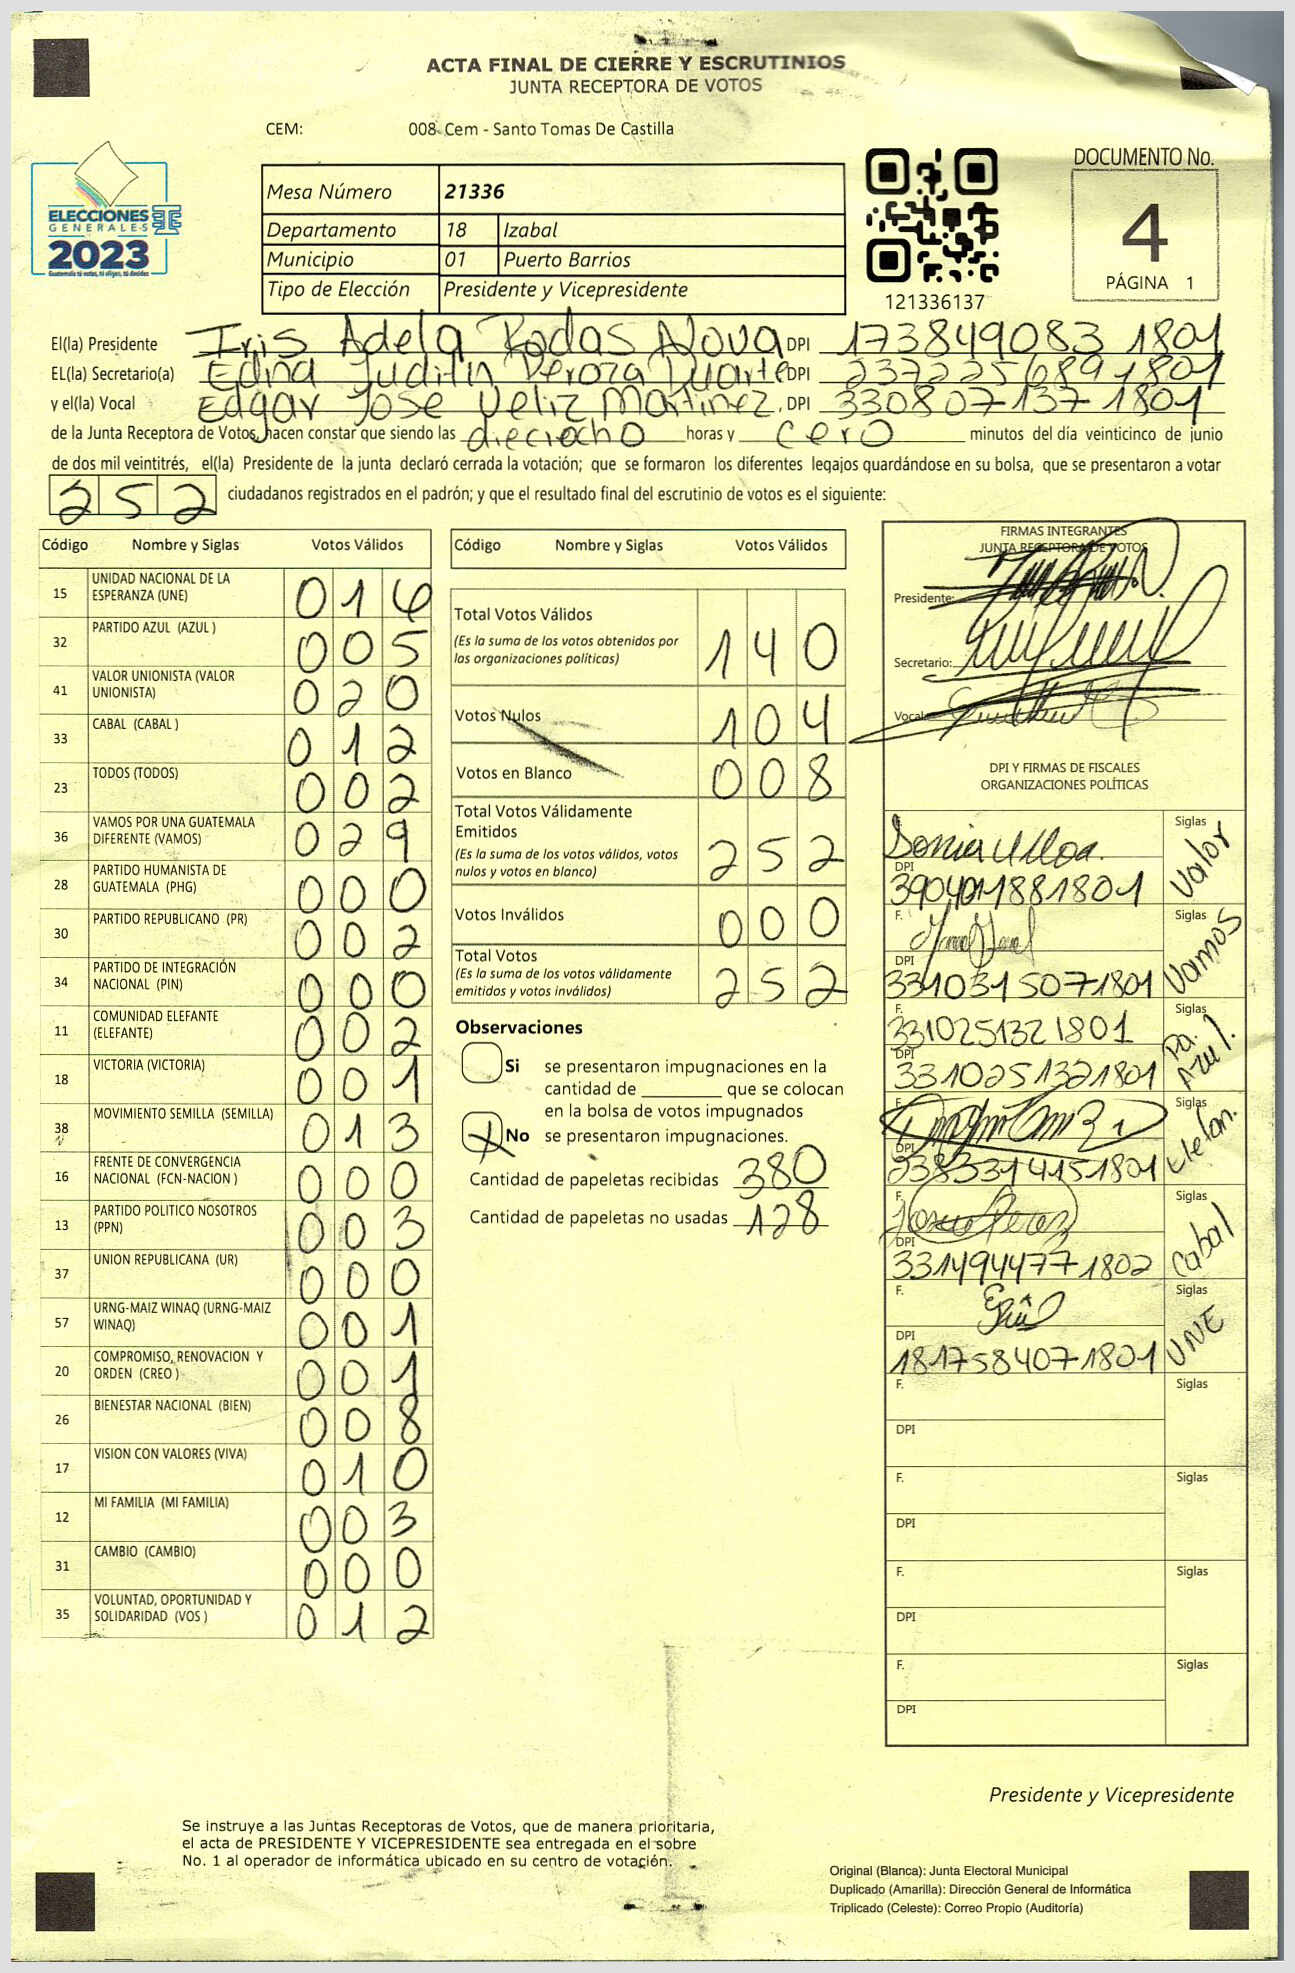 ACTA FINAL DE CIERRE Y ESCRUTINIOS
JUNTA RECEPTORA DE VOTOS
CEM: 008 Cem - Santo Tomas De Castilla
ELECCIONES
GENERALES
2023
Guatemala tú votas, tú eliges, tú decides
Mesa Número 21336
Departamento 18 Izabal
Municipio 01 Puerto Barrios
Tipo de Elección Presidente y Vicepresidente
121336137
DOCUMENTO No.
4
PÁGINA 1
El(la) Presidente Iris Adela Rodas Nova DPI 173849083 1801
EL(la) Secretario(a) Edina Judith Peroza Duarte DPI 237225689 1801
y el(la) Vocal Edgar Jose Veliz Martinez. DPI 330807137 1801
de la Junta Receptora de Votos, hacen constar que siendo las dieciocho horas y cero minutos del día veinticinco de junio
de dos mil veintitrés, el(la) Presidente de la junta declaró cerrada la votación; que se formaron los diferentes legajos guardándose en su bolsa, que se presentaron a votar
252 ciudadanos registrados en el padrón; y que el resultado final del escrutinio de votos es el siguiente:
Código Nombre y Siglas Votos Válidos
15 UNIDAD NACIONAL DE LA ESPERANZA (UNE) 016
32 PARTIDO AZUL (AZUL ) 005
41 VALOR UNIONISTA (VALOR UNIONISTA) 020
33 CABAL (CABAL ) 012
23 TODOS (TODOS) 002
36 VAMOS POR UNA GUATEMALA DIFERENTE (VAMOS) 029
28 PARTIDO HUMANISTA DE GUATEMALA (PHG) 000
30 PARTIDO REPUBLICANO (PR) 002
34 PARTIDO DE INTEGRACIÓN NACIONAL (PIN) 000
11 COMUNIDAD ELEFANTE (ELEFANTE) 002
18 VICTORIA (VICTORIA) 001
38 MOVIMIENTO SEMILLA (SEMILLA) 013
16 FRENTE DE CONVERGENCIA NACIONAL (FCN-NACION ) 000
13 PARTIDO POLITICO NOSOTROS (PPN) 003
37 UNION REPUBLICANA (UR) 000
57 URNG-MAIZ WINAQ (URNG-MAIZ WINAQ) 001
20 COMPROMISO, RENOVACION Y ORDEN (CREO ) 001
26 BIENESTAR NACIONAL (BIEN) 008
17 VISION CON VALORES (VIVA) 010
12 MI FAMILIA (MI FAMILIA) 003
31 CAMBIO (CAMBIO) 000
35 VOLUNTAD, OPORTUNIDAD Y SOLIDARIDAD (VOS ) 012
Código Nombre y Siglas Votos Válidos
Total Votos Válidos 140
(Es la suma de los votos obtenidos por
las organizaciones políticas)
Votos Nulos 104
Votos en Blanco 008
Total Votos Válidamente
Emitidos 252
(Es la suma de los votos válidos, votos
nulos y votos en blanco)
Votos Inválidos 000
Total Votos 252
(Es la suma de los votos válidamente
emitidos y votos inválidos)
Observaciones
Si se presentaron impugnaciones en la
cantidad de ________ que se colocan
en la bolsa de votos impugnados
X No se presentaron impugnaciones.
Cantidad de papeletas recibidas 380
Cantidad de papeletas no usadas 128
FIRMAS INTEGRANTES
JUNTA RECEPTORA DE VOTOS
Presidente:
Secretario:
Vocal:
DPI Y FIRMAS DE FISCALES
ORGANIZACIONES POLÍTICAS
F. Sonia Ulloa. Siglas Valor
DPI 3904011881801
F. Siglas Vamos
DPI 3310315071801
F. 3310251321801 Siglas Pa. Azul.
DPI 3310251321801
F. Siglas elefan.
DPI 2383314151801
F. Siglas Cabal
DPI 3314944771802
F. Siglas UNE
DPI 1817584071801
F. Siglas
DPI
F. Siglas
DPI
F. Siglas
DPI
F. Siglas
DPI
Presidente y Vicepresidente
Se instruye a las Juntas Receptoras de Votos, que de manera prioritaria,
el acta de PRESIDENTE Y VICEPRESIDENTE sea entregada en el sobre
No. 1 al operador de informática ubicado en su centro de votación.
Original (Blanca): Junta Electoral Municipal
Duplicado (Amarilla): Dirección General de Informática
Triplicado (Celeste): Correo Propio (Auditoría)